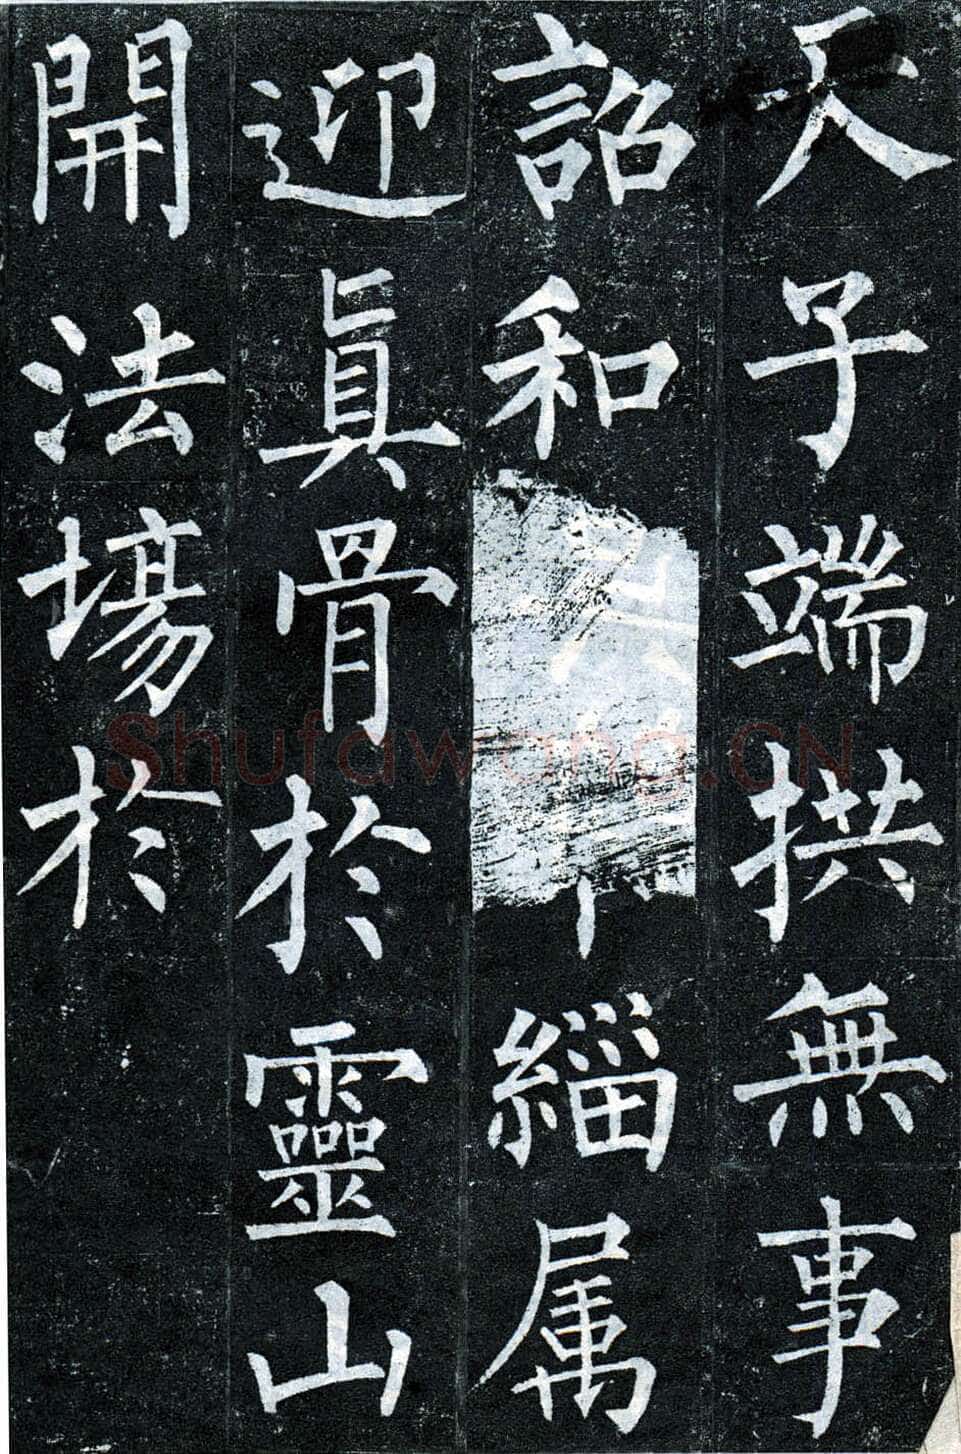 天子端拱無事
詔和緇属
迎眞骨於靈山
開法塲於
Shufawang.CN